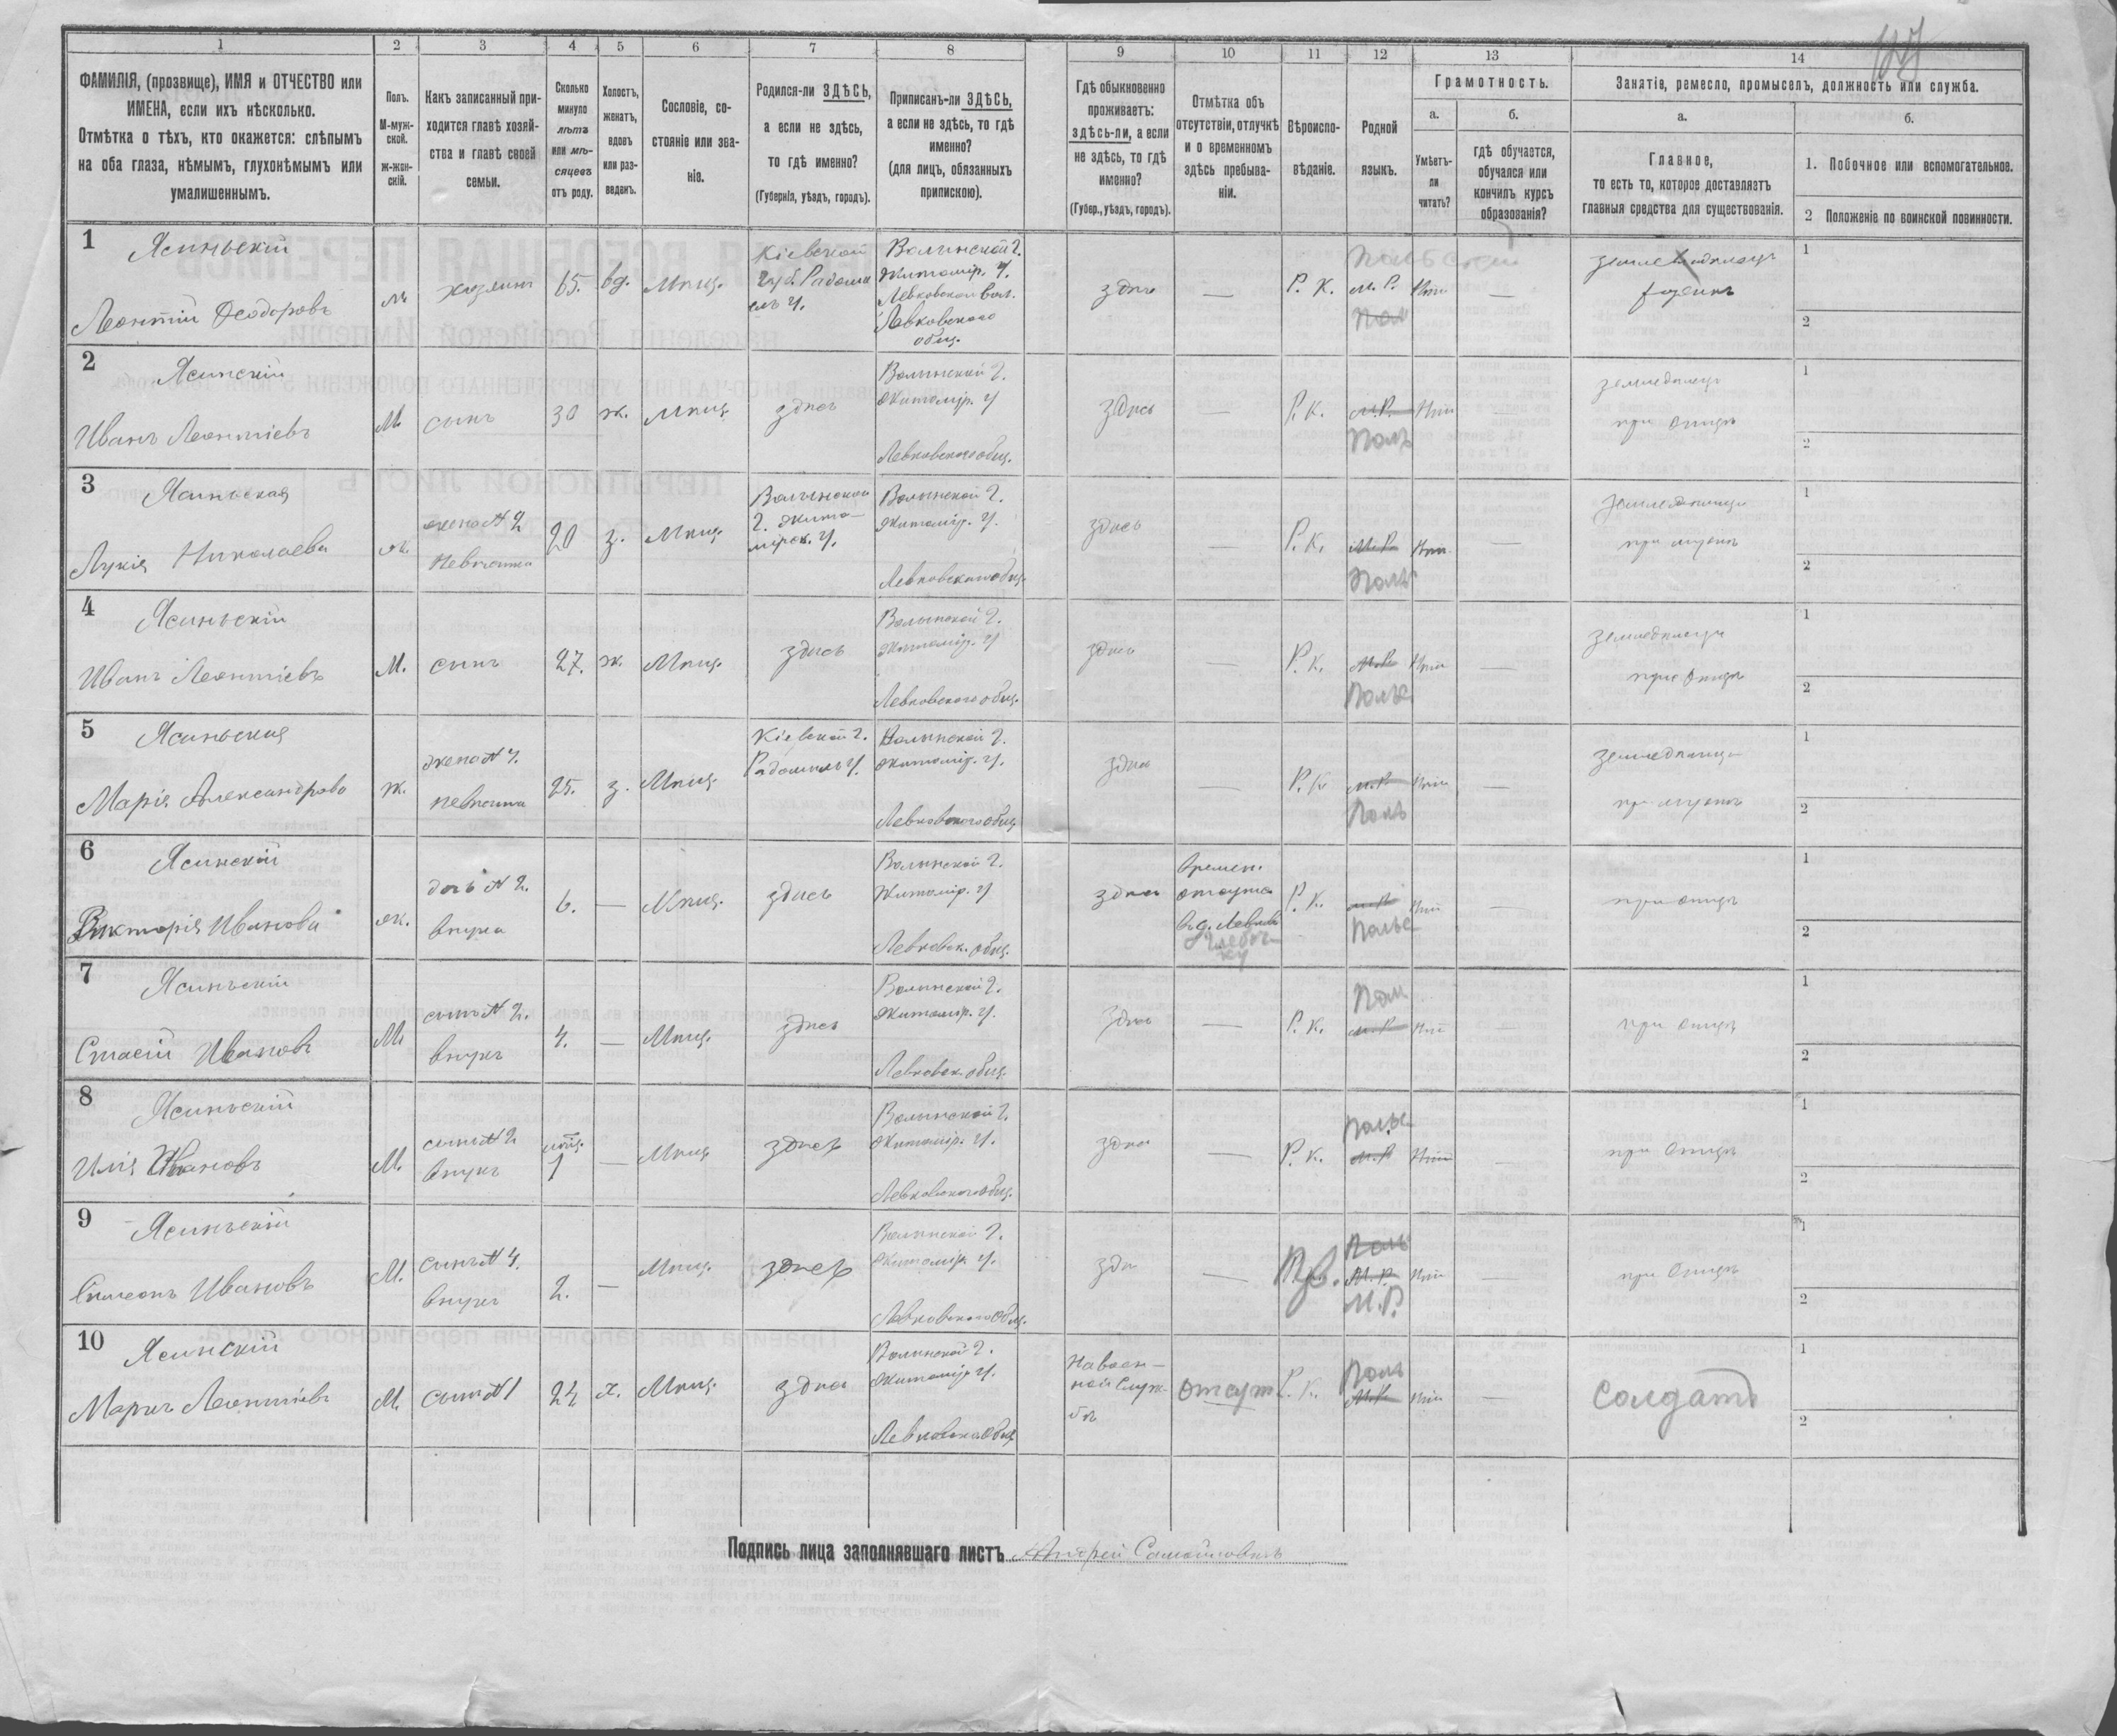 1 2 3 4 5 6 7 8 9 10 11 12 13 14
ФАМИЛІЯ, (прозвище), ИМЯ и ОТЧЕСТВО или
ИМЕНА, если ихъ нѣсколько.
Отмѣтка о тѣхъ, кто окажется: слѣпымъ
на оба глаза, нѣмымъ, глухонѣмымъ или
умалишеннымъ.
Полъ.
М-муж-
ской.
ж-жен-
скій.
Какъ записанный при-
ходится главѣ хозяй-
ства и главѣ своей
семьи.
Сколько
минуло
лѣтъ
или мѣ-
сяцевъ
отъ роду.
Холостъ,
женатъ,
вдовъ
или раз-
веденъ.
Сословіе, со-
стояніе или зва-
ніе.
Родился-ли ЗДѢСЬ,
а если не здѣсь,
то гдѣ именно?
(Губернія, уѣздъ, городъ).
Приписанъ-ли ЗДѢСЬ,
а если не здѣсь, то гдѣ
именно?
(для лицъ, обязанныхъ
припискою).
Гдѣ обыкновенно
проживаетъ:
здѣсь-ли, а если
не здѣсь, то гдѣ
именно?
(Губер., уѣздъ, городъ).
Отмѣтка объ
отсутствіи, отлучкѣ
и о временномъ
здѣсь пребыва-
ніи.
Вѣроиспо-
вѣданіе.
Родной
языкъ.
Грамотность.
а.
Умѣетъ-
ли
читать?
б.
гдѣ обучается,
обучался или
кончилъ курсъ
образованія?
Занятіе, ремесло, промыселъ, должность или служба.
а.
Главное,
то есть то, которое доставляетъ
главныя средства для существованія.
б.
1. Побочное или вспомогательное.
2 Положеніе по воинской повинности.
1
Ясиньскій
Леонтій Ѳеодоровъ
м
хозяинъ
65.
вд.
Мѣщ.
Кіевской
губ. Радомы
слъ У.
Волынской Г.
Житомір. У.
Левковской Вол.
Левковского
общ.
здѣсь
—
Р. К.
М. Р.
Нѣт
—
1
2
2
Ясинскій
Иванъ Леонтіевъ
М.
сынъ
30
ж.
Мѣщ.
здѣсь
Волынской Г.
Житомір. У
Левковского общ.
здѣсь
—
Р. К.
М. Р.
Поль
Нѣт
—
земледѣлецъ
при отцѣ
1
2
3
Ясиньская
Лукія Николаева
ж.
жена № 2
невѣстка
20
з.
Мѣщ.
Волынской
Г. Жито-
мірск. У.
Волынской Г.
Житомір. У.
Левковского общ.
здѣсь
—
Р. К.
М. Р.
Поль
Нѣт
—
при мужѣ
1
2
4
Ясиньскій
Иванъ Леонтіевъ
М.
сынъ
27.
ж.
Мѣщ.
здѣсь
Волынской Г.
Житомір. У
Левковского общ.
здѣсь
—
Р. К.
М. Р.
Поль
Нѣт
—
при отцѣ
1
2
5
Ясиньская
Марія Александрова
ж.
жена № 4.
невѣстка
25.
з.
Мѣщ.
Кіевской Г.
Радомысль У.
Волынской Г.
Житомір. У.
Левковского общ.
здѣсь
—
Р. К
М. Р
Поль
Нѣт
—
при мужѣ
1
2
6
Ясинской
Викторія Иванова
ж.
дочь № 2.
внучка
6.
—
Мѣщ.
здѣсь
Волынской Г.
Житомір. У
Левковск. общ.
здѣсь
Времен.
отсутс
Въ с. Левков
Р. К.
М. Р
Польс
Нѣт
—
при отцѣ
1
2
7
Ясиньскій
Стасій Ивановъ
М.
сынъ № 2.
внукъ
4.
—
Мѣщ.
здѣсь
Волынской Г.
Житомір. У.
Левковск. общ.
здѣсь
—
Р. К.
Пол
М. Р
Нѣт
—
при отцѣ
1
2
8
Ясиньскій
Илія Ивановъ
М.
сынъ № 2
внукъ
1
—
Мѣщ.
здѣсь
Волынской Г.
Житомір. У.
Левковского общ.
здѣсь
—
Р. К.
Польс
М. Р
Нѣт
—
при отцѣ
1
2
9
Ясиньскій
Симеонъ Ивановъ
М.
сынъ № 4.
внукъ
2.
—
Мѣщ.
здѣсь
Волынской Г.
Житомір. У.
Левковского общ.
здѣ
—
Пр.
Поль
М. Р.
М. Р.
Нѣт
—
при отцѣ
1
2
10
Ясинскій
Маркъ Леонтіевъ
М.
сынъ № 1
24
х.
Мѣщ.
здѣсь
Волынской Г.
Житомір. У.
Левковского общ
На воен-
ной служ-
бѣ
отсут
Р. К.
Поль
М. Р.
Нѣт
—
Солдатъ
1
2
Подпись лица заполнявшаго листъ Андрей Самойловичъ